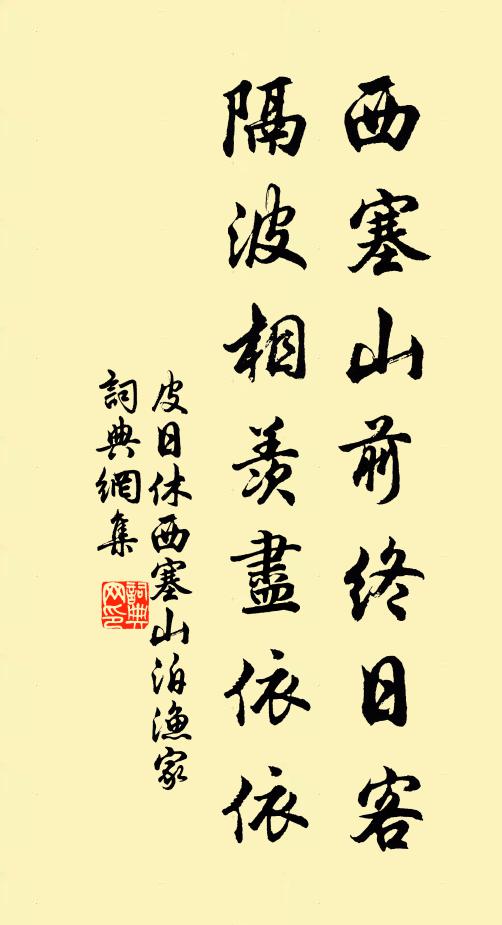 西塞山前終日客
隔波相羨盡依依
皮日休西塞山泊漁家
詞典網集
詞典
网印